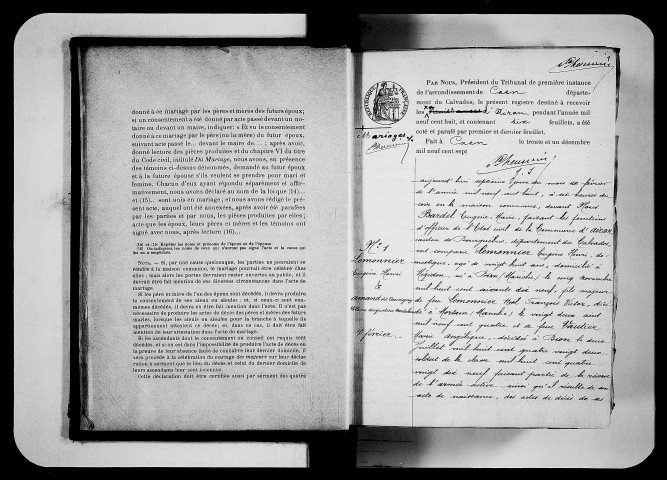 donné à ce mariage par les pères et mères des futurs époux;
si un consentement a été donné par acte passé devant un no-
taire ou devant un maire, indiquer: « Et vu le consentement
donné à ce mariage par le père (ou la mère) du futur époux,
suivant acte passé le... devant le maire de...; après avoir,
donné lecture des pièces produites et du chapitre VI du titre
du Code civil, intitulé Du Mariage, nous avons, en présence
des témoins ci-dessus dénommés, demandé au futur époux
et à la future épouse s'ils veulent se prendre pour mari et
femme. Chacun d'eux ayant répondu séparément et affir-
mativement, nous avons déclaré au nom de la loi que (14)...
et (15)... sont unis en mariage; et nous avons rédigé le pré-
sent acte, auquel ont été annexées, après avoir été parafées
par les parties et par nous, les pièces produites par elles;
acte que les époux, leurs pères et mères et les témoins ont
signé avec nous, après lecture (16)...
(14) et (15) Répéter les noms et prénoms de l'époux et de l'épouse.
(16) On indiquera les noms de ceux qui n'auront pas signé l'acte et la cause qui
les en a empêchés.
NOTA. — Si, par une cause quelconque, les parties ne pouvaient se
rendre à la maison commune, le mariage pourrait être célébré chez
elles; mais alors les portes devraient rester ouvertes au public, et il
devrait être fait mention de ces diverses circonstances dans l'acte de
mariage.
Si les père et mère de l'un des époux sont décédés, il devra produire
le consentement de ses aïeux ou aïeules; et, si ceux-ci sont eux-
mêmes décédés, il devra en être fait mention dans l'acte. Il n'est pas
nécessaire de produire les actes de décès des pères et mères des futurs
mariés, lorsque les aïeuls ou aïeules pour la branche à laquelle ils
appartiennent attestent ce décès; et, dans ce cas, il doit être fait
mention de leur attestation dans l'acte de mariage.
Si les ascendants dont le consentement ou conseil est requis sont
décédés, et si on est dans l'impossibilité de produire l'acte de décès ou
la preuve de leur absence faute de connaître leur dernier domicile, il
sera procédé à la célébration du mariage des majeurs sur leur décla-
ration à serment que le lieu du décès et celui du dernier domicile de
leurs ascendants leur sont inconnus.
Cette déclaration doit être certifiée aussi par serment des quatre
PAR NOUS, Président du Tribunal de première instance
de l'arrondissement de Caen départe-
ment du Calvados, le présent registre destiné à recevoir
les d'Airan pendant l'année mil
neuf cent huit, et contenant dix feuillets, a été
coté et parafé par premier et dernier feuillet.
Mariages
Fait à Caen le trente et un décembre
mil neuf cent sept
N° 1
Lemonnier
Eugène Henri
&
4 février
aujourd'hui
de l'année mil neuf cent huit, à six heures du
soir en la maison commune, devant Nous
Bardel Eugène, Marie, faisant les fonctions
d'officier de l'Etat civil de la Commune d'Airan,
canton de Bourguébus, département du Calvados,
ont comparu Lemonnier Eugène Henri, do-
mestique, âgé de vingt huit ans, domicilié à
né à (Manche) le cinq novembre
mil huit cent soixante dix neuf, fils majeur
de feu Lemonnier François Victor, décé-
dé à Mortain (Manche) le vingt deux août
mil neuf cent quatre et de feue
Marie Angélique, décédée à le deux
Juillet mil huit cent quatre vingt deux
soldat de la classe mil huit cent quatre
vingt dix neuf faisant partie de la réserve
de l'armée active ainsi qu'il résulte de son
acte de naissance, des actes de décès de ses